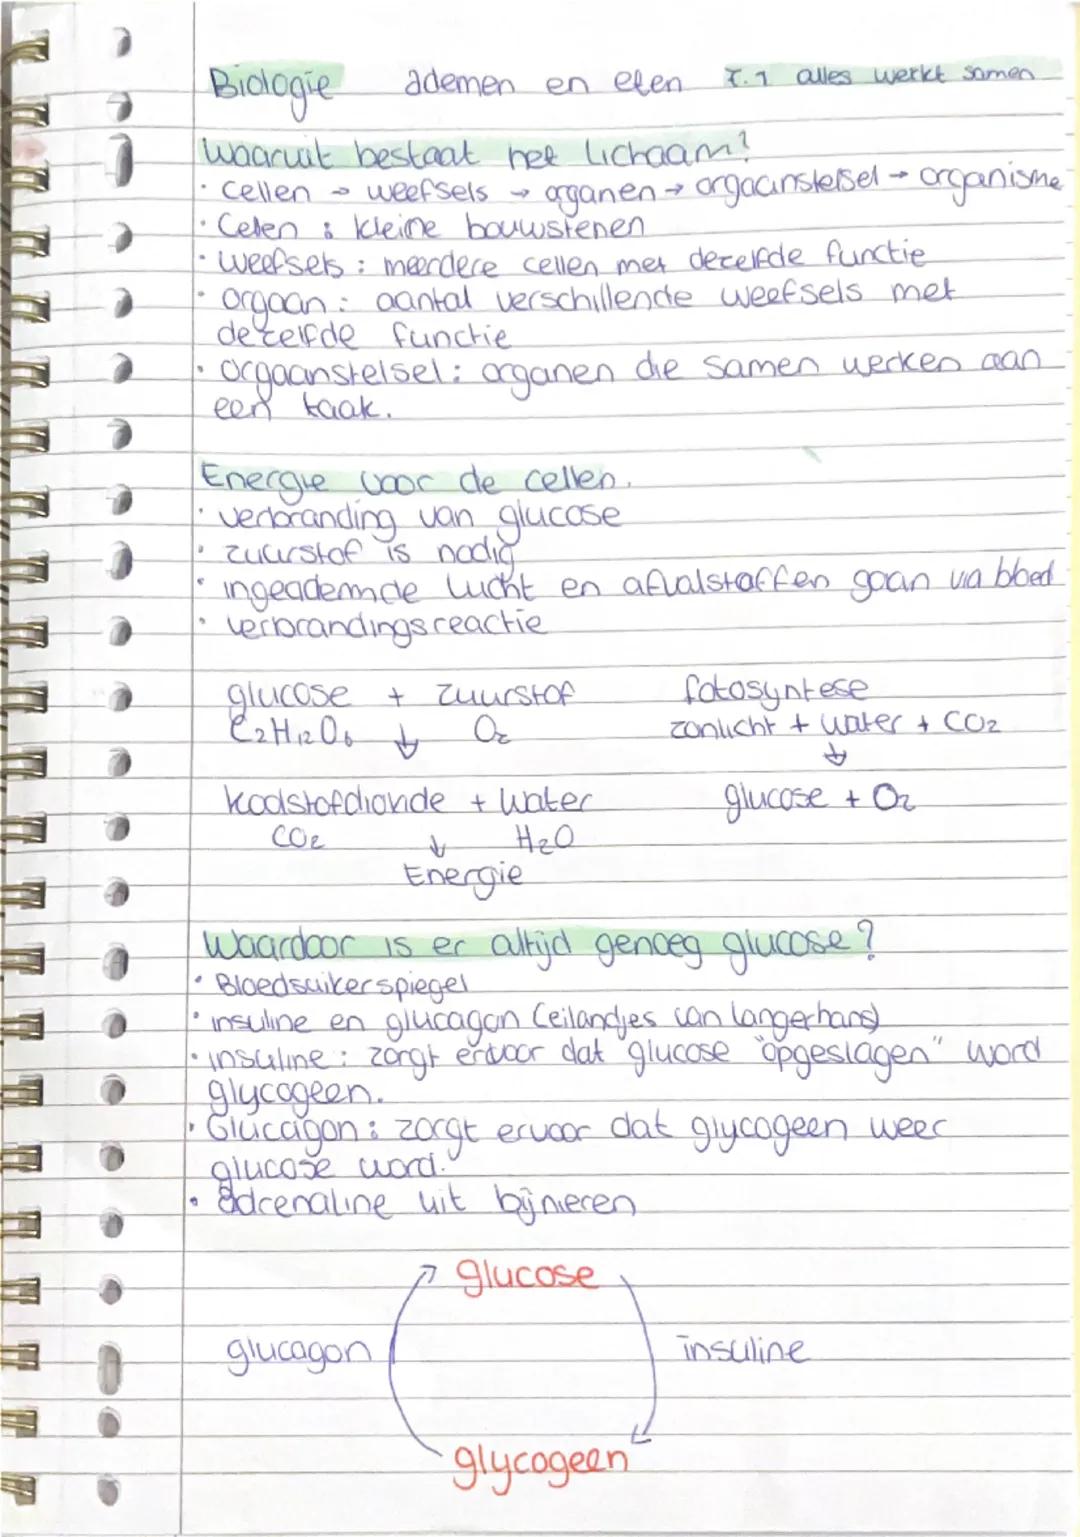 Biologie ademen en eten 7.1 alles werkt samen
Waaruit bestaat het lichaam?
· cellen → weefsels → organen → orgaanstelsel → organisme
· Cellen : kleine bouwstenen
· weefsels : meerdere cellen met dezelfde functie
· orgaan : aantal verschillende weefsels met
dezelfde functie
· orgaanstelsel : organen die samen werken aan
een taak.
Energie voor de cellen.
· verbranding van glucose
· zuurstof is nodig
· ingeademde lucht en afvalstoffen gaan via bloed
· verbrandingsreactie
glucose + zuurstof fotosyntese
C2H12O6 ↓ O2 zonlicht + water + CO2
↓
koolstofdioxide + water glucose + O2
CO2 ↓ H2O
Energie
Waardoor is er altijd genoeg glucose?
· Bloedsuikerspiegel
· insuline en glucagon (eilandjes van langerhans)
· insuline : zorgt ervoor dat glucose "opgeslagen" word
glycogeen.
· Glucagon : zorgt ervoor dat glycogeen weer
glucose word.
· adrenaline uit bijnieren
glucose
glucagon insuline
glycogeen